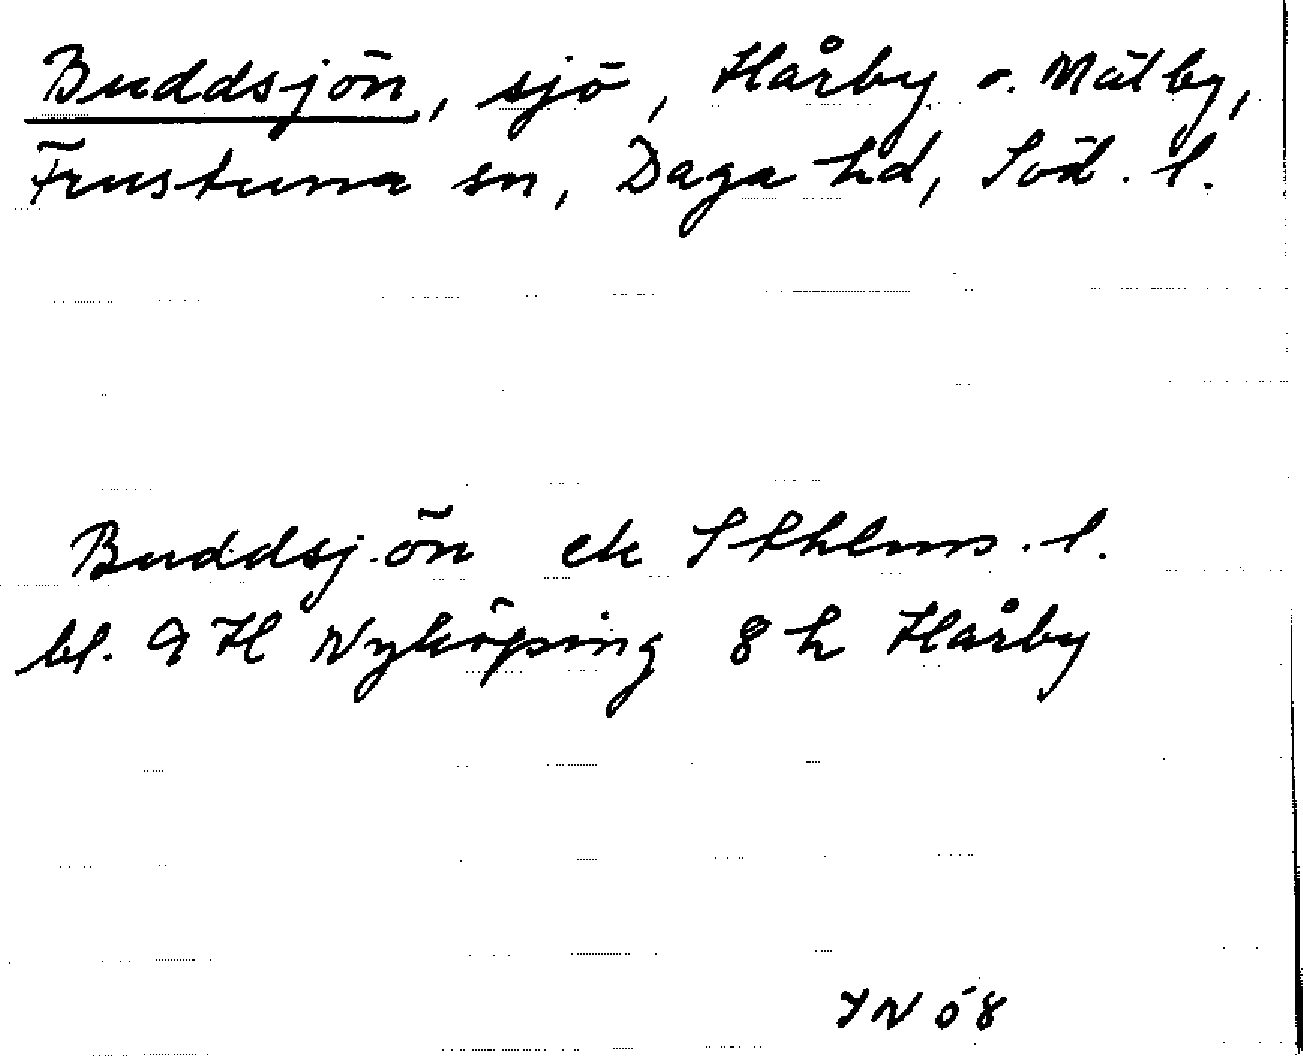 Buddsjön, sjö, Hårby o. Mälby,
Frustuna sn, Daga hd, Söd. l.
Buddsjön ek Sthlms. l.
bl. 9 H Nyköping 8 h Hårby